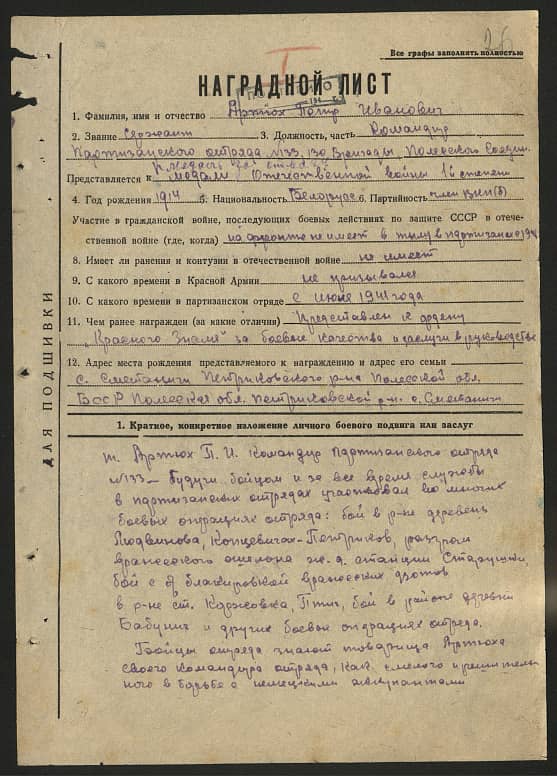 26
Все графы заполнять полностью
I
НАГРАДНОЙ ЛИСТ
1. Фамилия, имя и отчество Артюх Петр Иванович
2. Звание Сержант 3. Должность, часть Командир
Партизанского отряда №133, 130 Бригады, Полесского Соедин.
Представляется к медали "Отечественной войны 1й степени
4. Год рождения 1914 5. Национальность Белорус 6. Партийность член ВКП(б)
Участие в гражданской войне, последующих боевых действиях по защите СССР в отече-
ственной войне (где, когда) на фронте не имеет в тылу в партизанах с 1941
8. Имеет ли ранения и контузии в отечественной войне не имеет
9. С какого времени в Красной Армии не призывался
10. С какого времени в партизанском отряде с июня 1941 года
11. Чем ранее награжден (за какие отличия) Представлен к ордену
"Красного Знамя" за боевые качества и заслуги в руководстве
12. Адрес места рождения представляемого к награждению и адрес его семьи
с. Сметаничи Петриковского р-на Полесской обл.
БССР Полесская обл. Петриковский р-н. с. Сметаничи
ДЛЯ ПОДШИВКИ
1. Краткое, конкретное изложение личного боевого подвига или заслуг
т. Артюх П. И. Командир партизанского отряда
№133 – будучи бойцом и за все время службы
в партизанских отрядах участвовал во многих
боевых операциях отряда: бой в р-не деревень
Людвинова, Концевичи - Петриков, разгром
вражеского эшелона ж. д. станции Старушки,
бой с блакировкой вражеских дзотов
в р-не ст. Коржовка, Птич, бой в районе деревни
Бабуничи и других боевых операциях отряда.
Бойцы отряда знают товарища Артюха
своего командира отряда, как смелого и решитель-
ного в борьбе с немецкими оккупантами